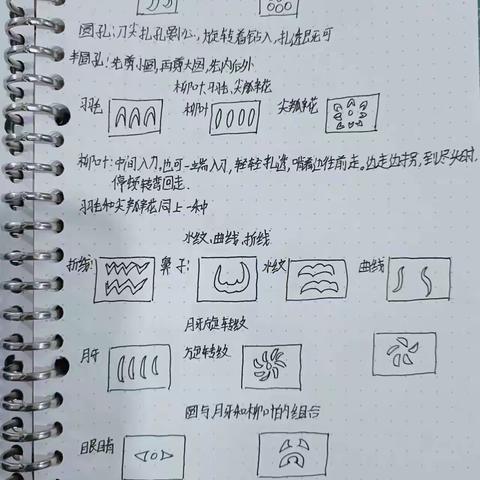 圆孔:刀尖扎孔割心,旋转着钻入,扎透即可
半圆孔:先剪小圆,再剪大圆,先内后外
柳叶,羽毛,尖瓣花
羽毛
柳叶
尖瓣花
柳叶:中间入刀,也可一端入刀,轻轻扎透,啃着边往前走。边走边拐,到尽头时,
停顿转弯回走.
羽毛和尖瓣花同上一种
水纹,曲线,折线
折线:
鼻子:
水纹
曲线
月牙旋转纹
月牙
旋转纹
圆与月牙和柳叶的组合
眼睛